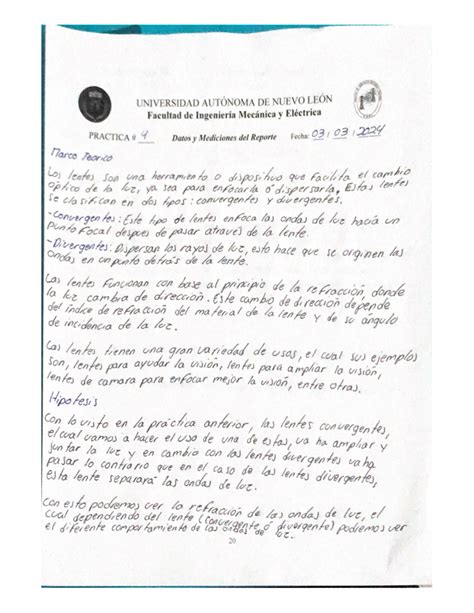 UNIVERSIDAD AUTÓNOMA DE NUEVO LEÓN
Facultad de Ingeniería Mecánica y Eléctrica
PRACTICA # 4 Datos y Mediciones del Reporte Fecha: 03/03/2024
Marco Teorico
Los lentes son una herramienta o dispositivo que facilita el cambio
óptico de la luz, ya sea para enfocarla ó dispersarla. Estas lentes
se clasifican en dos tipos: convergentes y divergentes.
-Convergentes: Este tipo de lentes enfoca las ondas de luz hacía un
punto focal despues de pasar através de la lente.
-Divergentes: Dispersan los rayos de luz, esto hace que se originen las
ondas en un punto detrás de la lente.
Las lentes funcionan con base al principio de la refracción, donde
la luz cambia de dirección. Este cambio de dirección depende
del índice de refracción del material de la lente y de su ángulo
de incidencia de la luz.
Las lentes tienen una gran variedad de usos, el cual sus ejemplos
son, lentes para ayudar la visión, lentes para ampliar la visión,
lentes de camara para enfocar mejor la visión, entre otras.
Hipotesis
Con lo visto en la práctica anterior, las lentes convergentes,
el cual vamos a hacer el uso de una de estas, va ha ampliar y
juntar la luz y en cambio con las lentes divergentes va ha
pasar lo contrario que en el caso de las lentes divergentes,
esta lente separará las ondas de luz.
Con esto podremos ver la refracción de las ondas de luz, el
cual dependiendo del lente (convergente ó divergente) podremos ver
el diferente comportamiento de las ondas de luz.
20